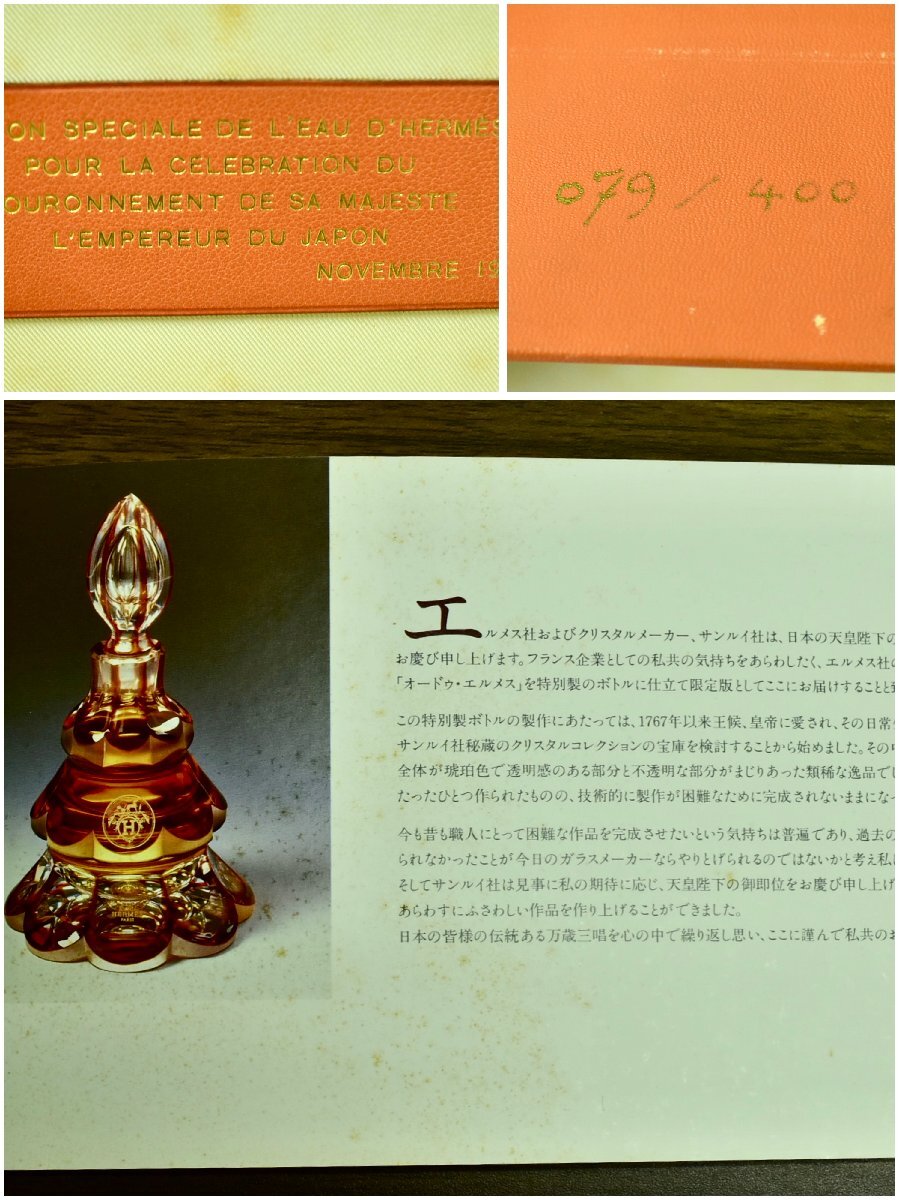 ON SPECIALE DE L'EAU D'HERMÈS
POUR LA CELEBRATION DU
OURONNEMENT DE SA MAJESTE
L'EMPEREUR DU JAPON
NOVEMBRE 19
079 / 400
エルメス社およびクリスタルメーカー、サンルイ社は、日本の天皇陛下の
お慶び申し上げます。フランス企業としての私共の気持ちをあらわしたく、エルメス社の
「オードゥ・エルメス」を特別製のボトルに仕立て限定版としてここにお届けすること
この特別製ボトルの製作にあたっては、1767年以来王候、皇帝に愛され、その日常
サンルイ社秘蔵のクリスタルコレクションの宝庫を検討することから始めました。その
全体が琥珀色で透明感のある部分と不透明な部分がまじりあった類稀な逸品でし
たったひとつ作られたものの、技術的に製作が困難なために完成されないままになっ
今も昔も職人にとって困難な作品を完成させたいという気持ちは普遍であり、過去の
られなかったことが今日のガラスメーカーならやりとげられるのではないかと考え私
そしてサンルイ社は見事に私の期待に応じ、天皇陛下の御即位をお慶び申し上げ
あらわすにふさわしい作品を作り上げることができました。
日本の皆様の伝統ある万歳三唱を心の中で繰り返し思い、ここに謹んで私共のお
HERMÈS
PARIS